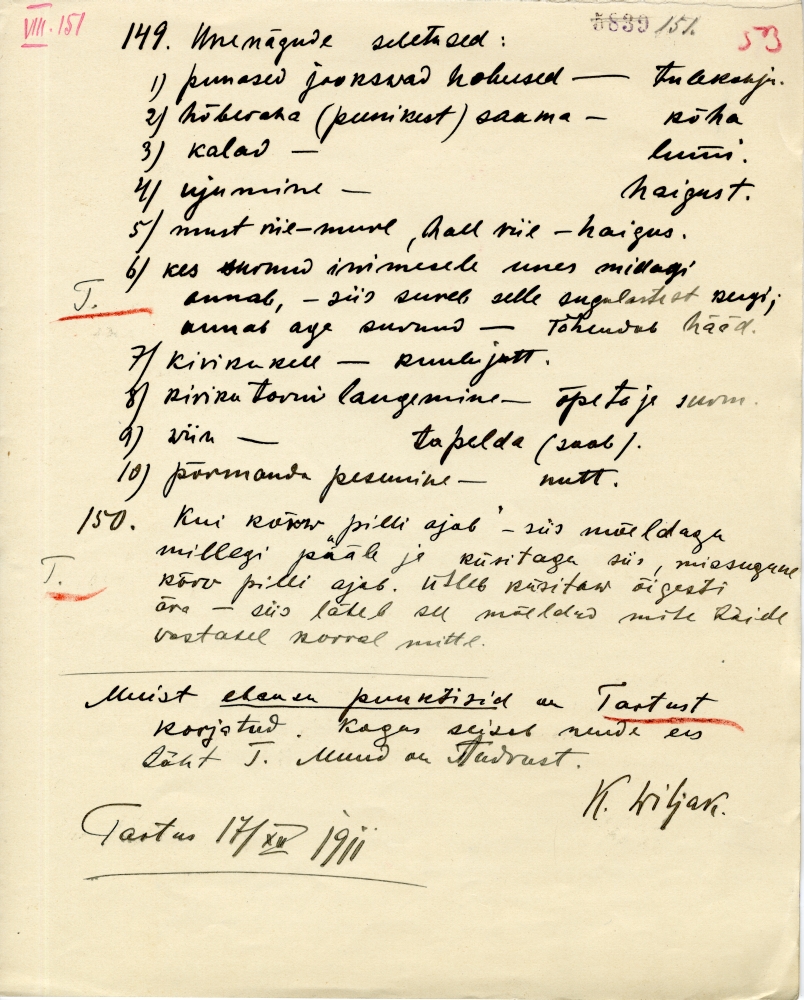 VIII. 151
5839 151.
53
149. Unenägude seletused:
1) punased jookswad hobused — tulekahju.
2) hõberaha (peenikest) saama — köha
3) kalad — lumi.
4) ujumine — haigust.
5) must riie - mure, hall riie - haigus.
6) kes surnud inimesele unes midagi
T.
annab, - siis sureb selle sugulastest keegi;
annab aga surnud — tähendab hääd.
7) kirikukell — kuulujutt.
8) kirikutorni langemine — õpetaja surm.
9) wiin — tapelda (saab).
10) põrmanda pesemine — nutt.
150. Kui kõrw „pilli ajab" - siis mõeldagu
T.
millegi pääle ja küsitagu siis, missugune
kõrv pilli ajab. Ütleb küsitaw õigesti
ära - siis läheb see mõeldud mõte täide
vastasel korral mitte.
Muist olevu punktisid on Tartust
korjatud. Kogus seisab nende ees
täht T. Muud on Audrust.
K. Wiljak.
Tartus 17/XII 1911